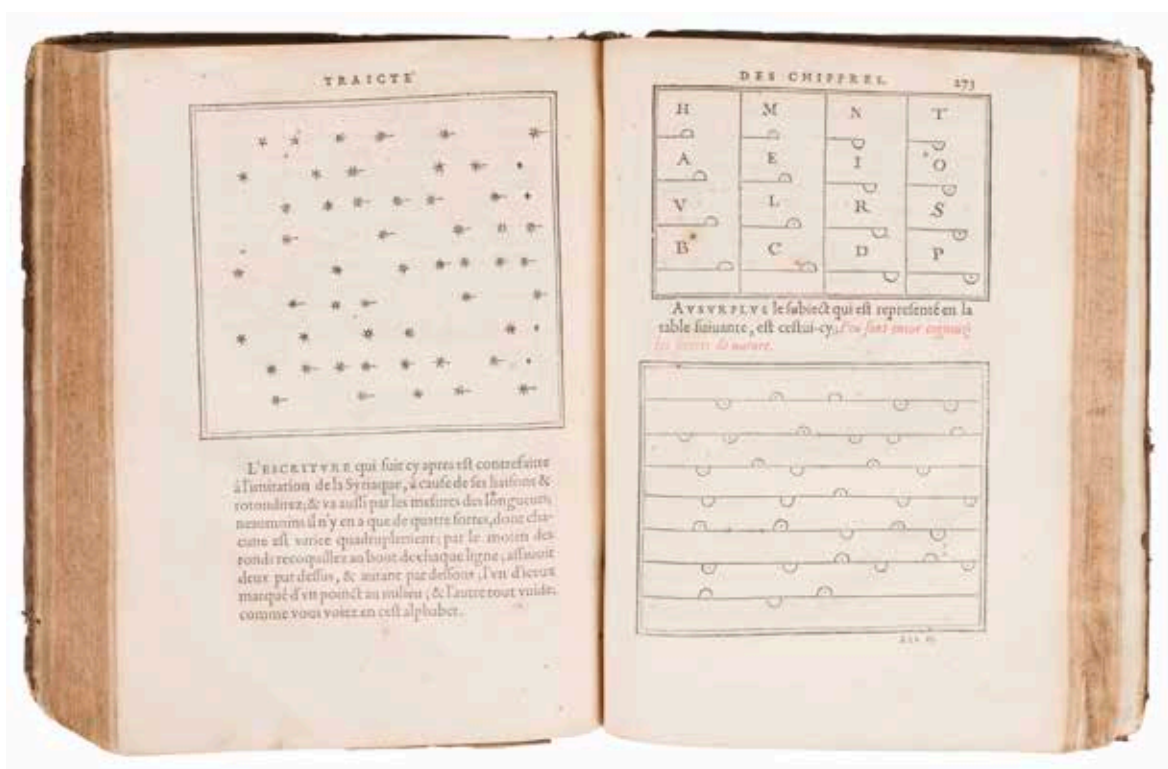 TRAICTE
L'ESCRITVRE qui suit cy apres est contrefaite
à l'imitation de la Syriaque, à cause de ses liaisons &
rotonditez; & va aussi par les mesures des longueurs,
neaumoins il n'y en a que de quatre sortes, dont cha-
cune est variee quadruplement; par le moien des
ronds recoquillez au bout de chaque ligne, assauoir
deux par dessus, & autant par dessous; l'vn d'iceux
marqué d'vn poinct au milieu, & l'autre tout vuide;
comme vous voiez en cest alphabet.
DES CHIFFRES. 273
H M N T
A E I O
V L R S
B C D P
AVSVRPLVS le subiect qui est representé en la
table suiuante, est cestui-cy; Peu sont encor cogneuz
les secrets de nature.